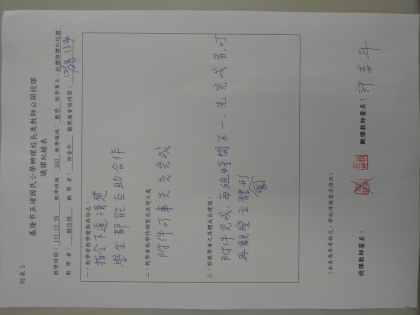 附表 5
基隆市五堵國民小學辦理校長及教師公開授課
議課紀錄表
教學時間：111.12.26 教學班級：501 教學領域：數學 教學單元：柱體錐體和球體
教學者： 觀察者：許素年 觀察後會談時間：12/28 13:30
一、教學者教學優點與特色：
指令下達清楚
學生都能互助合作
二、教學者教學待調整或改變之處：
附件可事先先完成
三、對教學者之具體成長建議：
附件完成，每組時間不一，先完成者，可
再觀察立體形
圖
（本表為參考格式，學校得視需求修改）
授課教師簽名： 觀課教師簽名：許素年